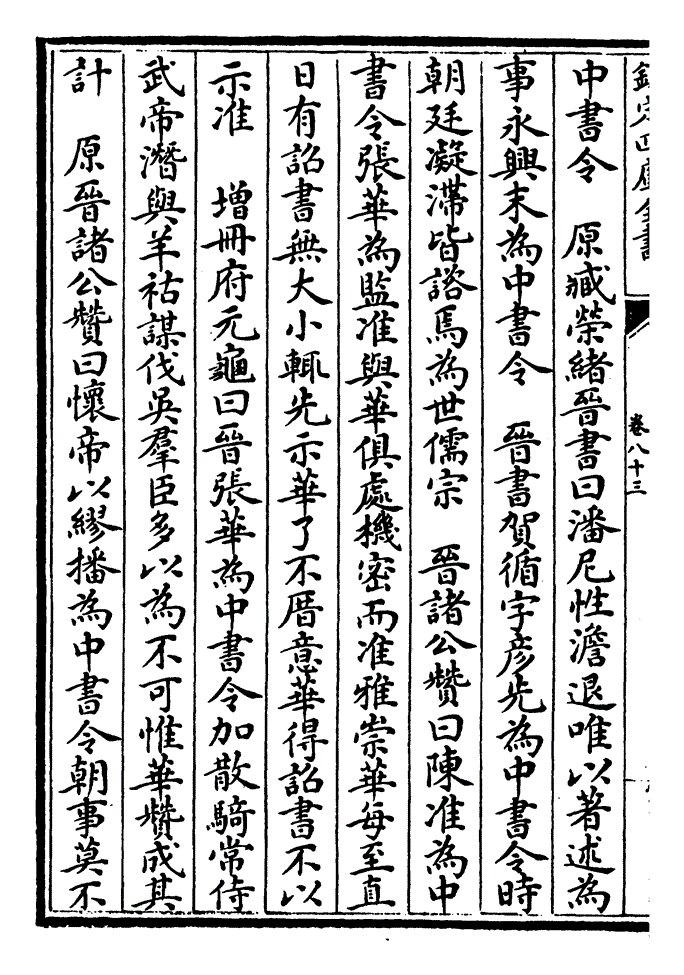 欽定四庫全書
卷八十三
中書令　原臧榮緒晉書曰潘尼性澹退唯以著述為
事永興末為中書令　晉書賀循字彥先為中書令時
朝廷凝滯皆諮焉為世儒宗　晉諸公贊曰陳准為中
書令張華為監准與華俱處機密而准雅崇華每至直
日有詔書無大小輒先示華了不厝意華得詔書不以
示准　增冊府元龜曰晉張華為中書令加散騎常侍
武帝潛與羊祜謀伐吳羣臣多以為不可惟華贊成其
計　原晉諸公贊曰懷帝以繆播為中書令朝事莫不